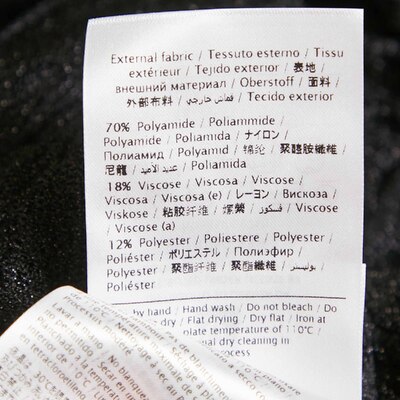 External fabric / Tessuto esterno / Tissu
extérieur / Tejido exterior / 表地 /
внешний материал / Oberstoff / 面料 /
外部布料 / قماش خارجي / Tecido exterior
70% Polyamide / Poliammide /
Polyamide / Poliamida / ナイロン /
Полиамид / Polyamid / 锦纶 / 聚醯胺纖維 /
尼龍 / عديد الأميد / Poliamida
18% Viscose / Viscosa / Viscose /
Viscosa / Viscosa (e) / レーヨン / Вискоза /
Viskose / 粘胶纤维 / 嫘縈 / فسكوز / Viscose
/ Viscose (a)
12% Polyester / Poliestere / Polyester /
Poliéster / ポリエステル / Полиэфир /
Polyester / 聚酯纤维 / 聚酯纖維 / بوليستر /
Poliéster
by hand / Hand wash / Do not bleach / Do
dry / Flat drying / Dry flat / Iron at
plate temperature of 110°C /
nal dry cleaning in
process